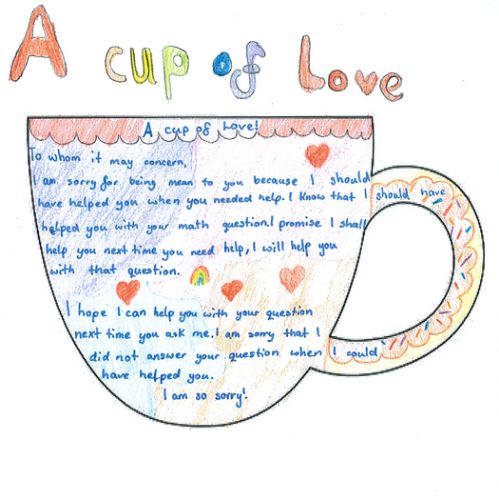 A cup of Love
A cup of Love!
To whom it may concern,
I am sorry for being mean to you because I should
have helped you when you needed help. I know that I should have
helped you with your math question. I promise I shall
help you next time you need help, I will help you
with that question.
I hope I can help you with your question
next time you ask me. I am sorry that I
did not answer your question when I could
have helped you.
I am so sorry!